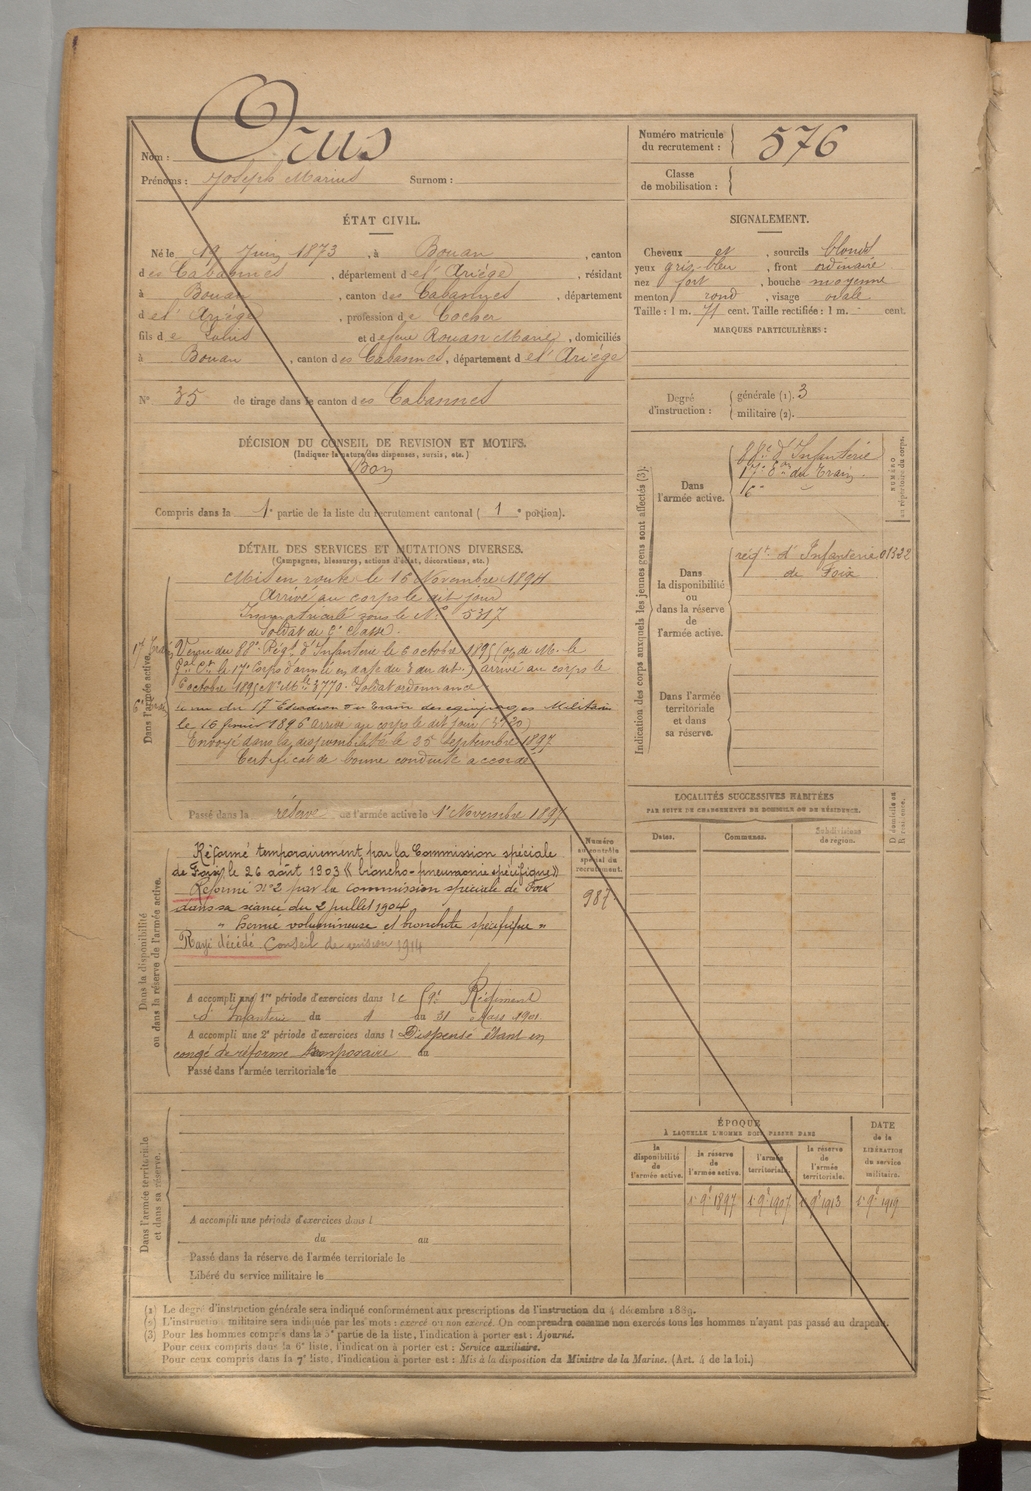 Nom : Orus
Prénoms : Joseph Marius Surnom :
Numéro matricule du recrutement : 576
Classe de mobilisation :
ÉTAT CIVIL.
Né le 19 Juin 1873, à Bouan, canton
des Cabannes, département de l'Ariège, résidant
à Bouan, canton des Cabannes, département
de l'Ariège, profession de Cocher
fils de Louis et de feue Rouan Marie, domiciliés
à Bouan, canton des Cabannes, département de l'Ariège
N° 35 de tirage dans le canton des Cabannes
SIGNALEMENT.
Cheveux et, sourcils blonds
yeux gris-bleu, front ordinaire
nez fort, bouche moyenne
menton rond, visage ovale
Taille : 1 m. 71 cent. Taille rectifiée : 1 m. cent.
MARQUES PARTICULIÈRES :
Degré d'instruction : générale (1). 3
militaire (2).
DÉCISION DU CONSEIL DE REVISION ET MOTIFS.
(Indiquer la nature des dispenses, sursis, etc.)
Bon
Compris dans la 1e partie de la liste du recrutement cantonal (1e portion).
DÉTAIL DES SERVICES ET MUTATIONS DIVERSES.
(Campagnes, blessures, actions d'éclat, décorations, etc.)
Dans l'armée active.
Mis en route le 16 Novembre 1894
Arrivé au corps le dit jour
Immatriculé sous le N° 5317
Soldat de 2e classe.
Venu du 88e Régt d'Infanterie le 6 octobre 1895 (op de M. le
Gal Ct le 17e Corps d'armée en date du 3 du dit) arrivé au corps le
6 octobre 1895 No Mle 3770. Soldat ordonnance
venu du 17e Escadron du Train des équipages Militaire
le 16 février 1896 arrivé au corps le dit jour
Envoyé dans la disponibilité le 25 Septembre 1897
Certificat de bonne conduite accordé
Passé dans la réserve de l'armée active le 1er Novembre 1897
Indication des corps auxquels les jeunes gens sont affectés (3).
NUMÉRO au répertoire du corps.
Dans l'armée active.
88e d'Infanterie
17e Eon du Train
16e
Dans la disponibilité ou dans la réserve de l'armée active.
régt d'Infanterie 01322
de Foix
Dans l'armée territoriale et dans sa réserve.
Dans la disponibilité ou dans la réserve de l'armée active.
Numéro au contrôle spécial du recrutement.
987
Réformé temporairement par la Commission spéciale
de Foix le 26 août 1903 « broncho-pneumonie spécifique »
Réformé N°2 par la Commission spéciale de Foix
dans sa séance du 2 juillet 1904
" Hernie volumineuse et bronchite spécifique "
Rayé décédé Conseil de revision 1914
A accompli une 1re période d'exercices dans le 59e Régiment
d'Infanterie du 4 au 31 Mars 1901
A accompli une 2e période d'exercices dans l Dispensé étant en
congé de réforme temporaire au
Passé dans l'armée territoriale le
LOCALITÉS SUCCESSIVES HABITÉES
PAR SUITE DE CHANGEMENTS DE DOMICILE OU DE RÉSIDENCE.
Dates.
Communes.
Subdivisions de région.
D. domicile ou R. résidence.
Dans l'armée territoriale et dans sa réserve.
A accompli une période d'exercices dans l
du au
Passé dans la réserve de l'armée territoriale le
Libéré du service militaire le
ÉPOQUE
À LAQUELLE L'HOMME DOIT PASSER DANS
DATE de la LIBÉRATION du service militaire.
la disponibilité de l'armée active.
la réserve de l'armée active.
l'armée territoriale.
la réserve de l'armée territoriale.
1er 9bre 1897
1er 9bre 1907
1er 9bre 1913
1er 9bre 1919
(1) Le degré d'instruction générale sera indiqué conformément aux prescriptions de l'instruction du 4 décembre 1889.
(2) L'instruction militaire sera indiquée par les mots : exercé ou non exercé. On comprendra comme non exercés tous les hommes n'ayant pas passé au drapeau.
(3) Pour les hommes compris dans la 5e partie de la liste, l'indication à porter est : Ajourné.
Pour ceux compris dans la 6e liste, l'indication à porter est : Service auxiliaire.
Pour ceux compris dans la 7e liste, l'indication à porter est : Mis à la disposition du Ministre de la Marine. (Art. 4 de la loi.)